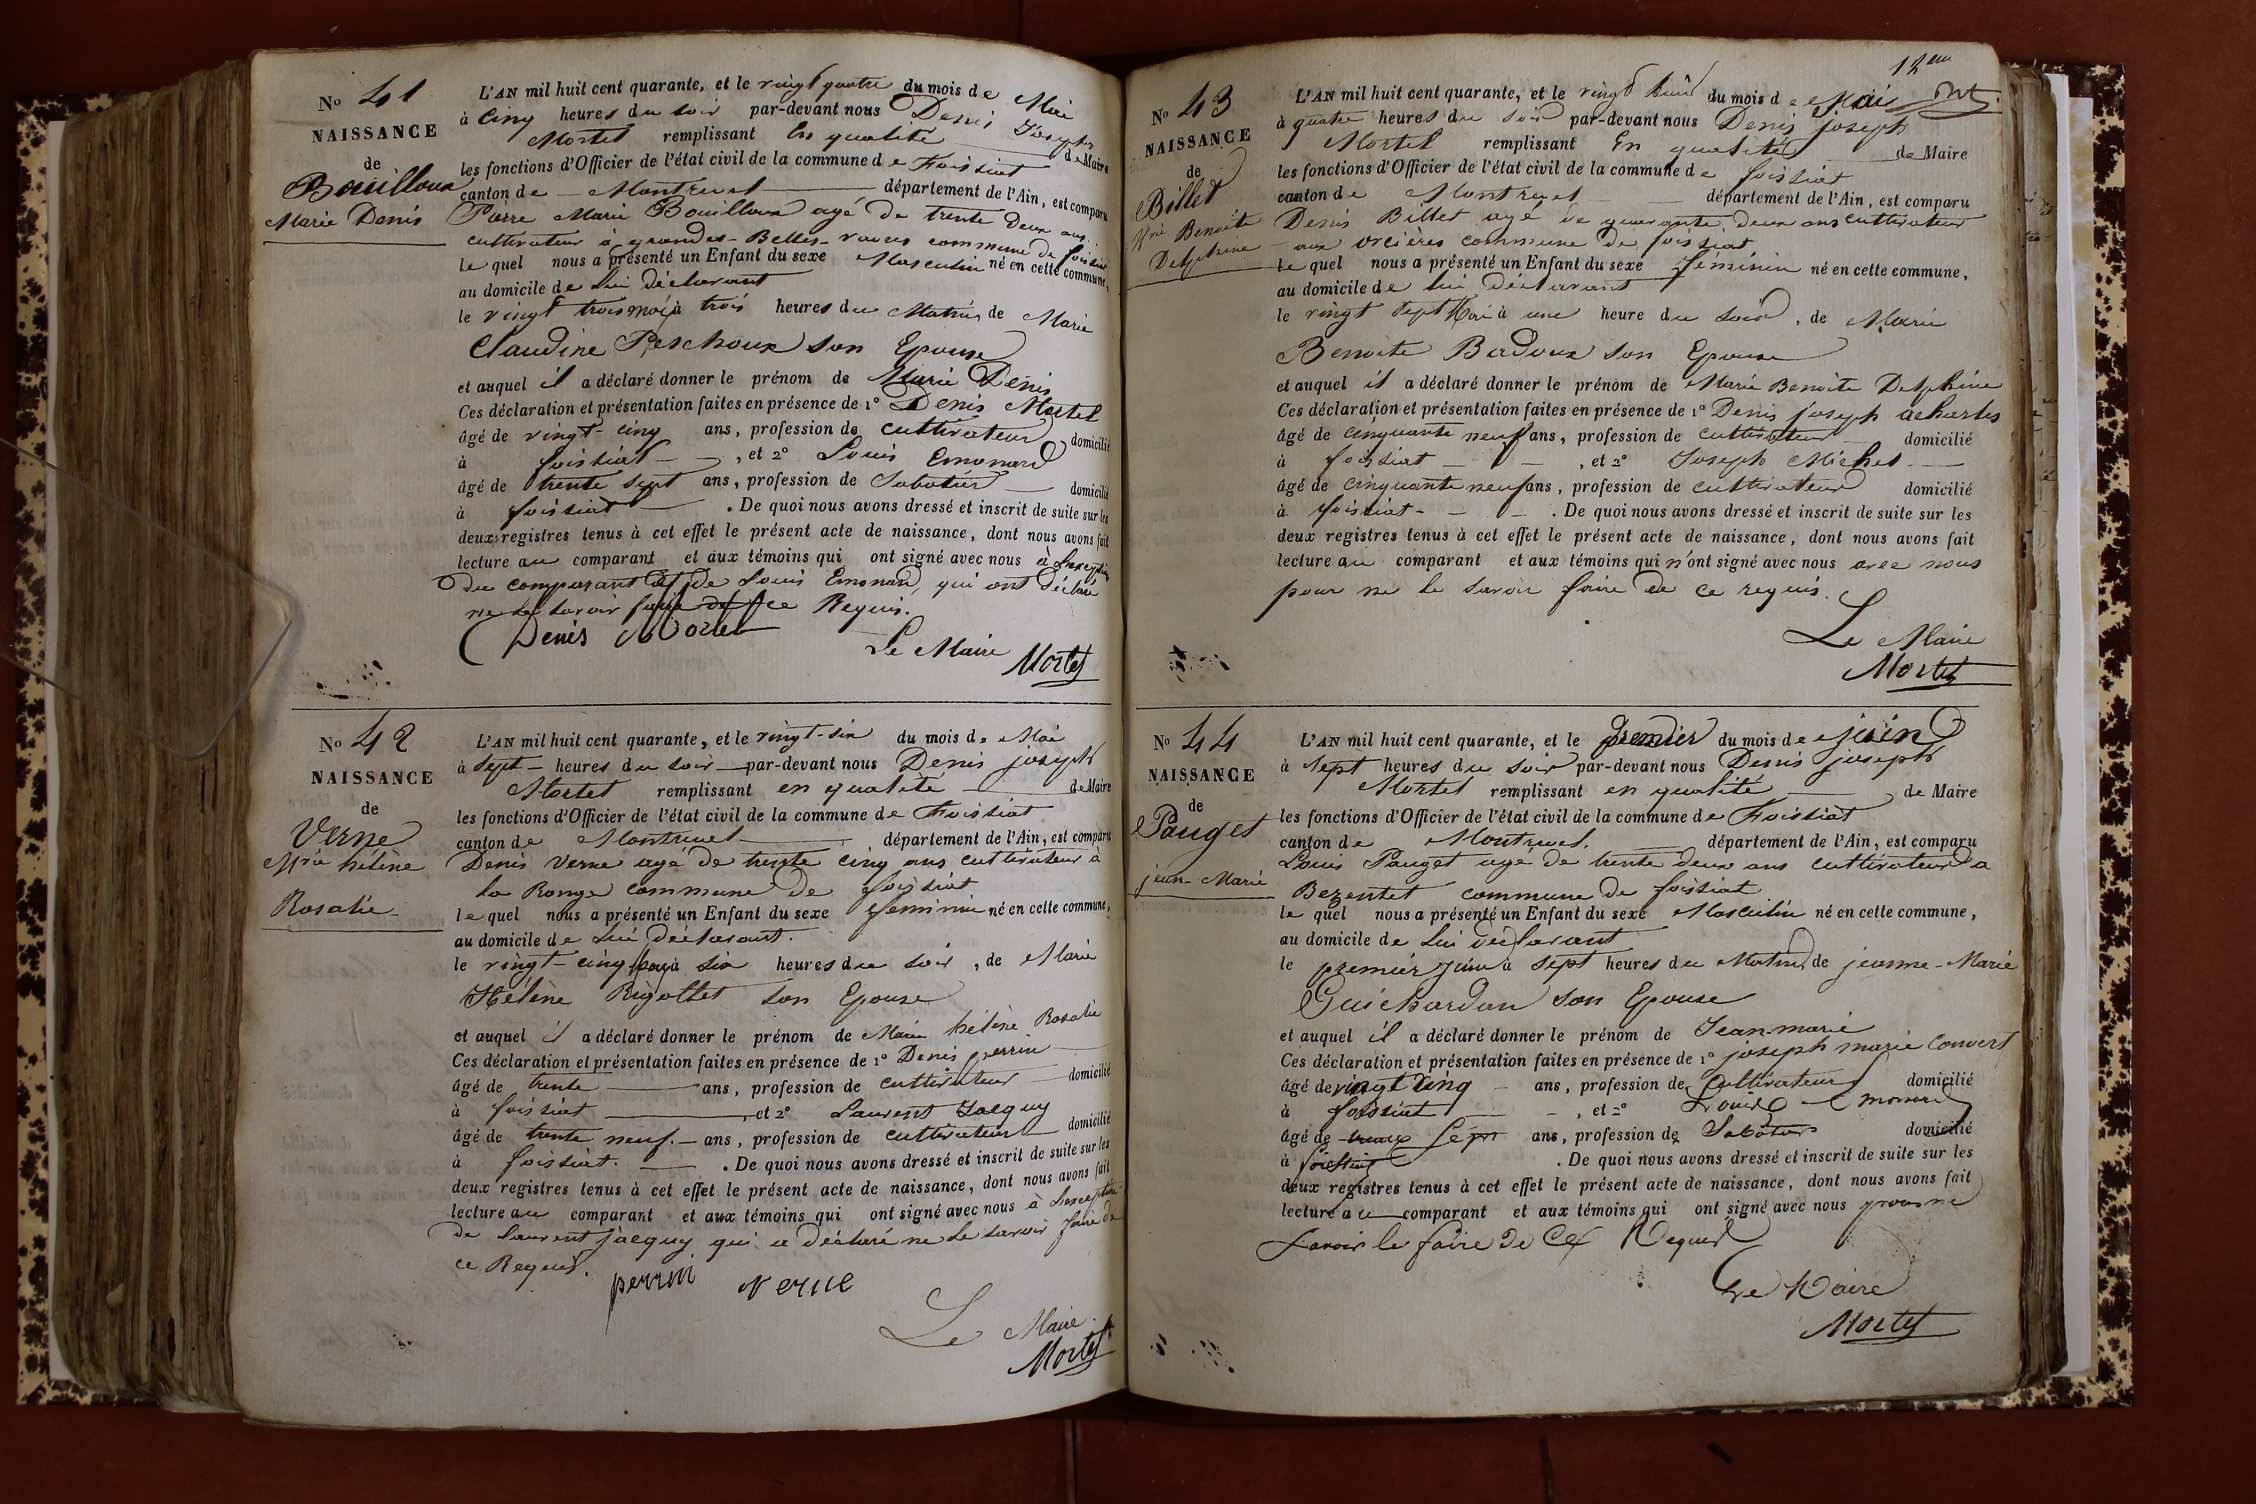 No 41
NAISSANCE
de
Bouilloux
Marie Denis
L'AN mil huit cent quarante, et le vingt quatre du mois de Mai
à cinq heures du soir par-devant nous Denis Joseph
Mortel remplissant en qualité de Maire
les fonctions d'Officier de l'état civil de la commune de Foissiat
canton de Montrevel département de l'Ain, est comparu
Pierre Marie Bouilloux agé de trente deux ans
cultivateur à grandes-Belles-vavres commune de foissiat
le quel nous a présenté un Enfant du sexe Masculin né en cette commune,
au domicile de lui déclarant
le vingt trois mai à trois heures du Matin, de Marie
Claudine Peschoux son Epouse
et auquel il a déclaré donner le prénom de Marie Denis
Ces déclaration et présentation faites en présence de 1º Denis Mortel
âgé de vingt-cinq ans, profession de cultivateur domicilié
à foissiat , et 2º Louis Emonard
âgé de trente sept ans, profession de Sabotier domicilié
à foissiat . De quoi nous avons dressé et inscrit de suite sur les
deux registres tenus à cet effet le présent acte de naissance, dont nous avons fait
lecture au comparant et aux témoins qui ont signé avec nous à l'exception
du comparant et de Louis Emonard, qui ont déclaré
ne le savoir faire de ce Requis.
Denis Mortel
Le Maire
Mortel
No 42
NAISSANCE
de
Verne
Mrie hélène
Rosalie
L'AN mil huit cent quarante, et le vingt-six du mois de Mai
à sept heures du soir par-devant nous Denis joseph
Mortel remplissant en qualité de Maire
les fonctions d'Officier de l'état civil de la commune de Foissiat
canton de Montrevel département de l'Ain, est comparu
Denis Verne agé de trente cinq ans cultivateur à
la Ronge commune de foissiat
le quel nous a présenté un Enfant du sexe féminin né en cette commune,
au domicile de lui déclarant.
le vingt-cinq mai à six heures du soir, de Marie
Hélène Rigollet son Epouse
et auquel il a déclaré donner le prénom de Marie hélène Rosalie
Ces déclaration et présentation faites en présence de 1º Denis perrin
âgé de trente ans, profession de cultivateur domicilié
à foissiat , et 2º Laurent Jacquy
âgé de trente neuf ans, profession de cultivateur domicilié
à foissiat. . De quoi nous avons dressé et inscrit de suite sur les
deux registres tenus à cet effet le présent acte de naissance, dont nous avons fait
lecture au comparant et aux témoins qui ont signé avec nous à l'exception
de laurent jacquy qui a déclaré ne le savoir faire de
ce Requis.
perrin verne
Le Maire
Mortel
12em
No 43
NAISSANCE
de
Billet
Mrie Benoite
Delphine
L'AN mil huit cent quarante, et le vingt huit du mois de Mai
à quatre heures du soir par-devant nous Denis joseph
Mortel remplissant en qualité de Maire
les fonctions d'Officier de l'état civil de la commune de foissiat
canton de Montrevel département de l'Ain, est comparu
Denis Billet agé de quarante deux ans cultivateur
aux orcières commune de foissiat
le quel nous a présenté un Enfant du sexe féminin né en cette commune,
au domicile de lui déclarant
le vingt sept Mai à une heure du soir, de Marie
Benoite Badoux son Epouse
et auquel il a déclaré donner le prénom de Marie Benoite Delphine
Ces déclaration et présentation faites en présence de 1º Denis joseph acharles
âgé de cinquante neuf ans, profession de cultivateur domicilié
à foissiat , et 2º Joseph Michel
âgé de cinquante neuf ans, profession de cultivateur domicilié
à foissiat . De quoi nous avons dressé et inscrit de suite sur les
deux registres tenus à cet effet le présent acte de naissance, dont nous avons fait
lecture au comparant et aux témoins qui n'ont signé avec nous avec nous
pour ne le savoir faire de ce requis.
Le Maire
Mortel
No 44
NAISSANCE
de
Pauget
jean-Marie
L'AN mil huit cent quarante, et le premier du mois de juin
à sept heures du soir par-devant nous Denis joseph
Mortel remplissant en qualité de Maire
les fonctions d'Officier de l'état civil de la commune de Foissiat
canton de Montrevel. département de l'Ain, est comparu
Louis Pauget agé de trente deux ans cultivateur a
Bezentet commune de foissiat
le quel nous a présenté un Enfant du sexe Masculin né en cette commune,
au domicile de lui déclarant
le premier juin à sept heures du Matin, de jeanne-Marie
Guichardan son Epouse
et auquel il a déclaré donner le prénom de Jean marie
Ces déclaration et présentation faites en présence de 1º joseph marie Convert
âgé de vingt cinq ans, profession de Cultivateur domicilié
à foissiat , et 2º Louis Emonard
âgé de trente sept ans, profession de Sabotier domicilié
à foissiat . De quoi nous avons dressé et inscrit de suite sur les
deux registres tenus à cet effet le présent acte de naissance, dont nous avons fait
lecture au comparant et aux témoins qui ont signé avec nous pour ne
savoir le faire de ce Requis
Le Maire
Mortel